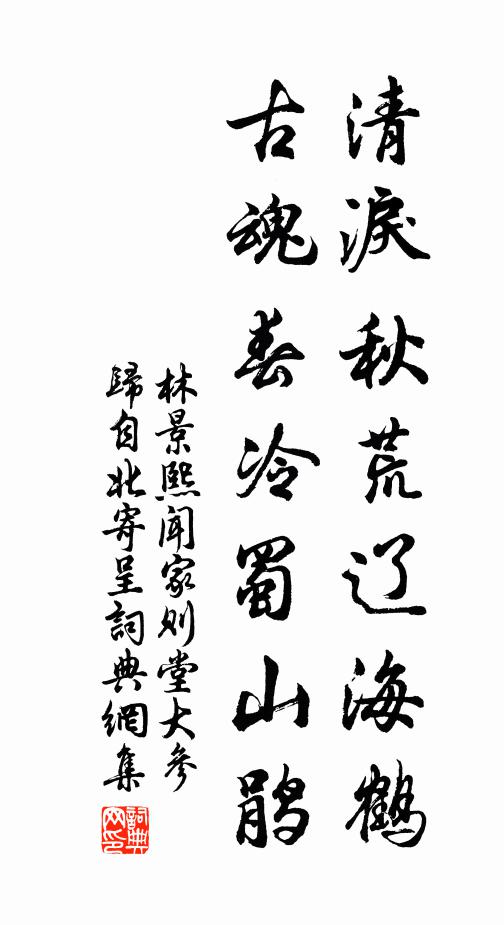 清淚秋荒辽海鶴
古魂春冷蜀山鹃
林景熙聞家则堂大參
歸自北寄呈詞典網集
詞典
网印